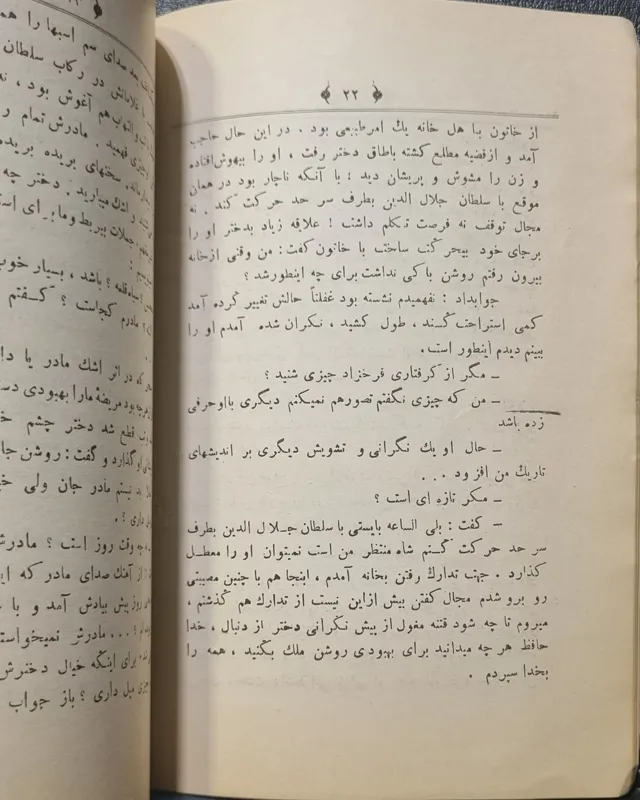 ﴿ ۲۲ ﴾
از خاتون با هل خانه یك امر طبیعی بود . در این حال حاجب
آمد و ازقضیه مطلع گشته باطاق دختر رفت ، او را بیهوش افتاده
و زن را مشوش و پریشان دید ؛ با آنکه ناچار بود در همان
موقع با سلطان جلال الدین بطرف سر حد حرکت کند ، نه
مجال توقف نه فرصت تکلم داشت ! علاقه زیاد بدختر او را
برجای خود بیحرکت ساخت با خاتون گفت : من وقتی ازخانه
بیرون رفتم روشن باکی نداشت برای چه اینطورشد ؟
جوابداد : نفهمیدم نشسته بود غفلتاً حالش تغییر کرده آمد
کمی استراحت کند ، طول کشید ، نگران شده آمدم او را
ببینم دیدم اینطور است .
ــ مگر از گرفتاری فرخزاد چیزی شنید ؟
ــ من که چیزی نگفتم تصورهم نمیکنم دیگری بااوحرفی
زده باشد
ــ حال او یك نگرانی و تشویش دیگری بر اندیشهای
تاریك من افزود . . .
ــ مگر تازه ای است ؟
ــ گفت : بلی الساعه بایستی با سلطان جلال الدین بطرف
سر حد حرکت کنم شاه منتظر من است نمیتوان او را معطل
گذارد . جهت تدارك رفتن بخانه آمدم ، اینجا هم با چنین مصیبتی
رو برو شدم مجال گفتن بیش ازاین نیست از تدارك هم گذشتم ،
میروم تا چه شود فتنه مغول از پیش نگرانی دختر از دنبال ، خدا
حافظ هر چه میدانید برای بهبودی روشن ملك بکنید ، همه را
بخدا سپردم .
صدای سم اسبها را
در رکاب سلطان
هم آغوش بود ،
فهمید . مادرش تمام
سخنهای بریده بریده
و اشك میبارید . دختر چه
جملات بیربط وما
باشد ، بسیار خوب
مادرم کجاست ؟ گفتم
که در اثر اشك مادر یا
بود مریضهٔ مارا بهبودی
قطع شد دختر چشم
او گذارد و گفت : روشن
نیستم مادر جان ولی
داری ؟ .
چه وقت روز است ؟
از آهنك صدای مادر که
روز پیش بیادش آمد و با
؟ . . . مادرش نمیخواست
برای اینکه خیال دخترش
میل داری ؟ باز جواب